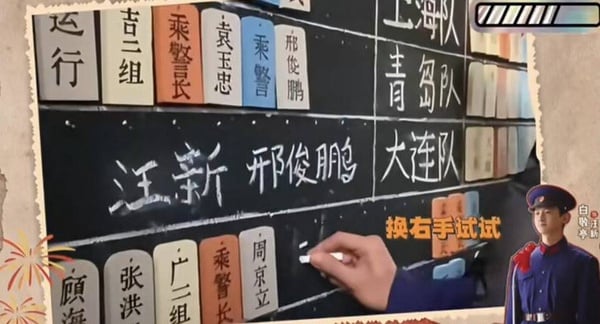 运行
吉二组
乘警长
袁玉忠
乘警
邢俊鹏
上海队
青岛队
汪新 邢俊鹏
大连队
换右手试试
白敬亭
饰汪新
顾海
张洪
广二组
乘警长
周京立